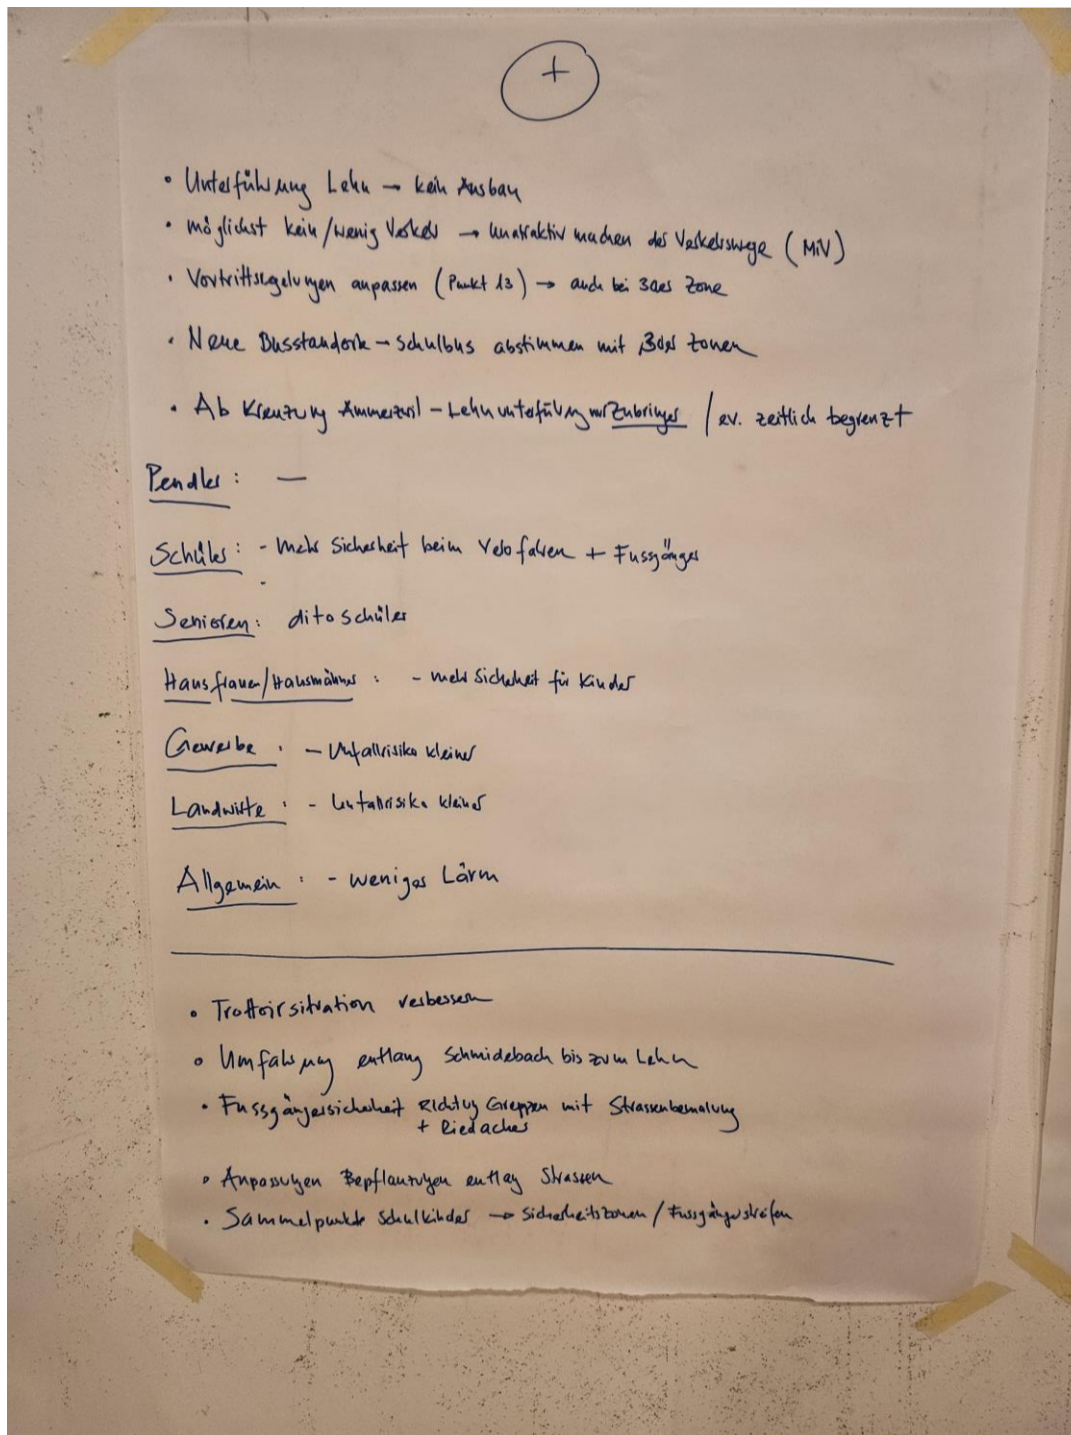 +
• Unterführung Lehn → kein Ausbau
• möglichst kein/wenig Verkehr → unattraktiv machen der Verkehrswege (MiV)
• Vortrittsregelungen anpassen (Punkt 13) → auch bei 30er Zone
• Neue Busstandorte → Schulbus abstimmen mit 30er Zonen
• Ab Kreuzung Ammerzwil – Lehnunterführung nur Zubringer / ev. zeitlich begrenzt
Pendler: —
Schüler: - mehr Sicherheit beim Velofahren + Fussgänger
Senioren: dito Schüler
Hausfrauen/Hausmänner: - mehr Sicherheit für Kinder
Gewerbe: - Unfallrisiko kleiner
Landwirte: - Unfallrisiko kleiner
Allgemein: - weniger Lärm
• Trottoirsituation verbessern
• Umfahrung entlang Schmidebach bis zum Lehn
• Fussgängersicherheit Richtung Greppen mit Strassenbemalung
+ Riedacher
• Anpassungen Bepflanzungen entlang Strassen
• Sammelpunkte Schulkinder → Sicherheitszonen / Fussgängerstreifen